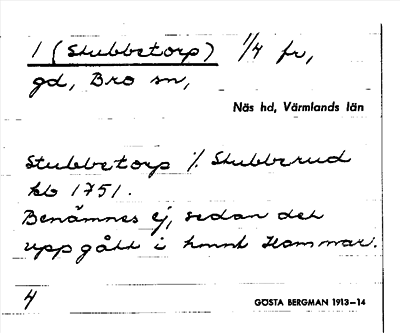 1 (Stubbetorp) 1/4 fr,
gd, Bro sn,
Näs hd, Värmlands län
Stubbetorp /. Stubberud
kb 1751.
Benämnes ej, sedan det
uppgått i hmnt Hammar.
4
GÖSTA BERGMAN 1913–14